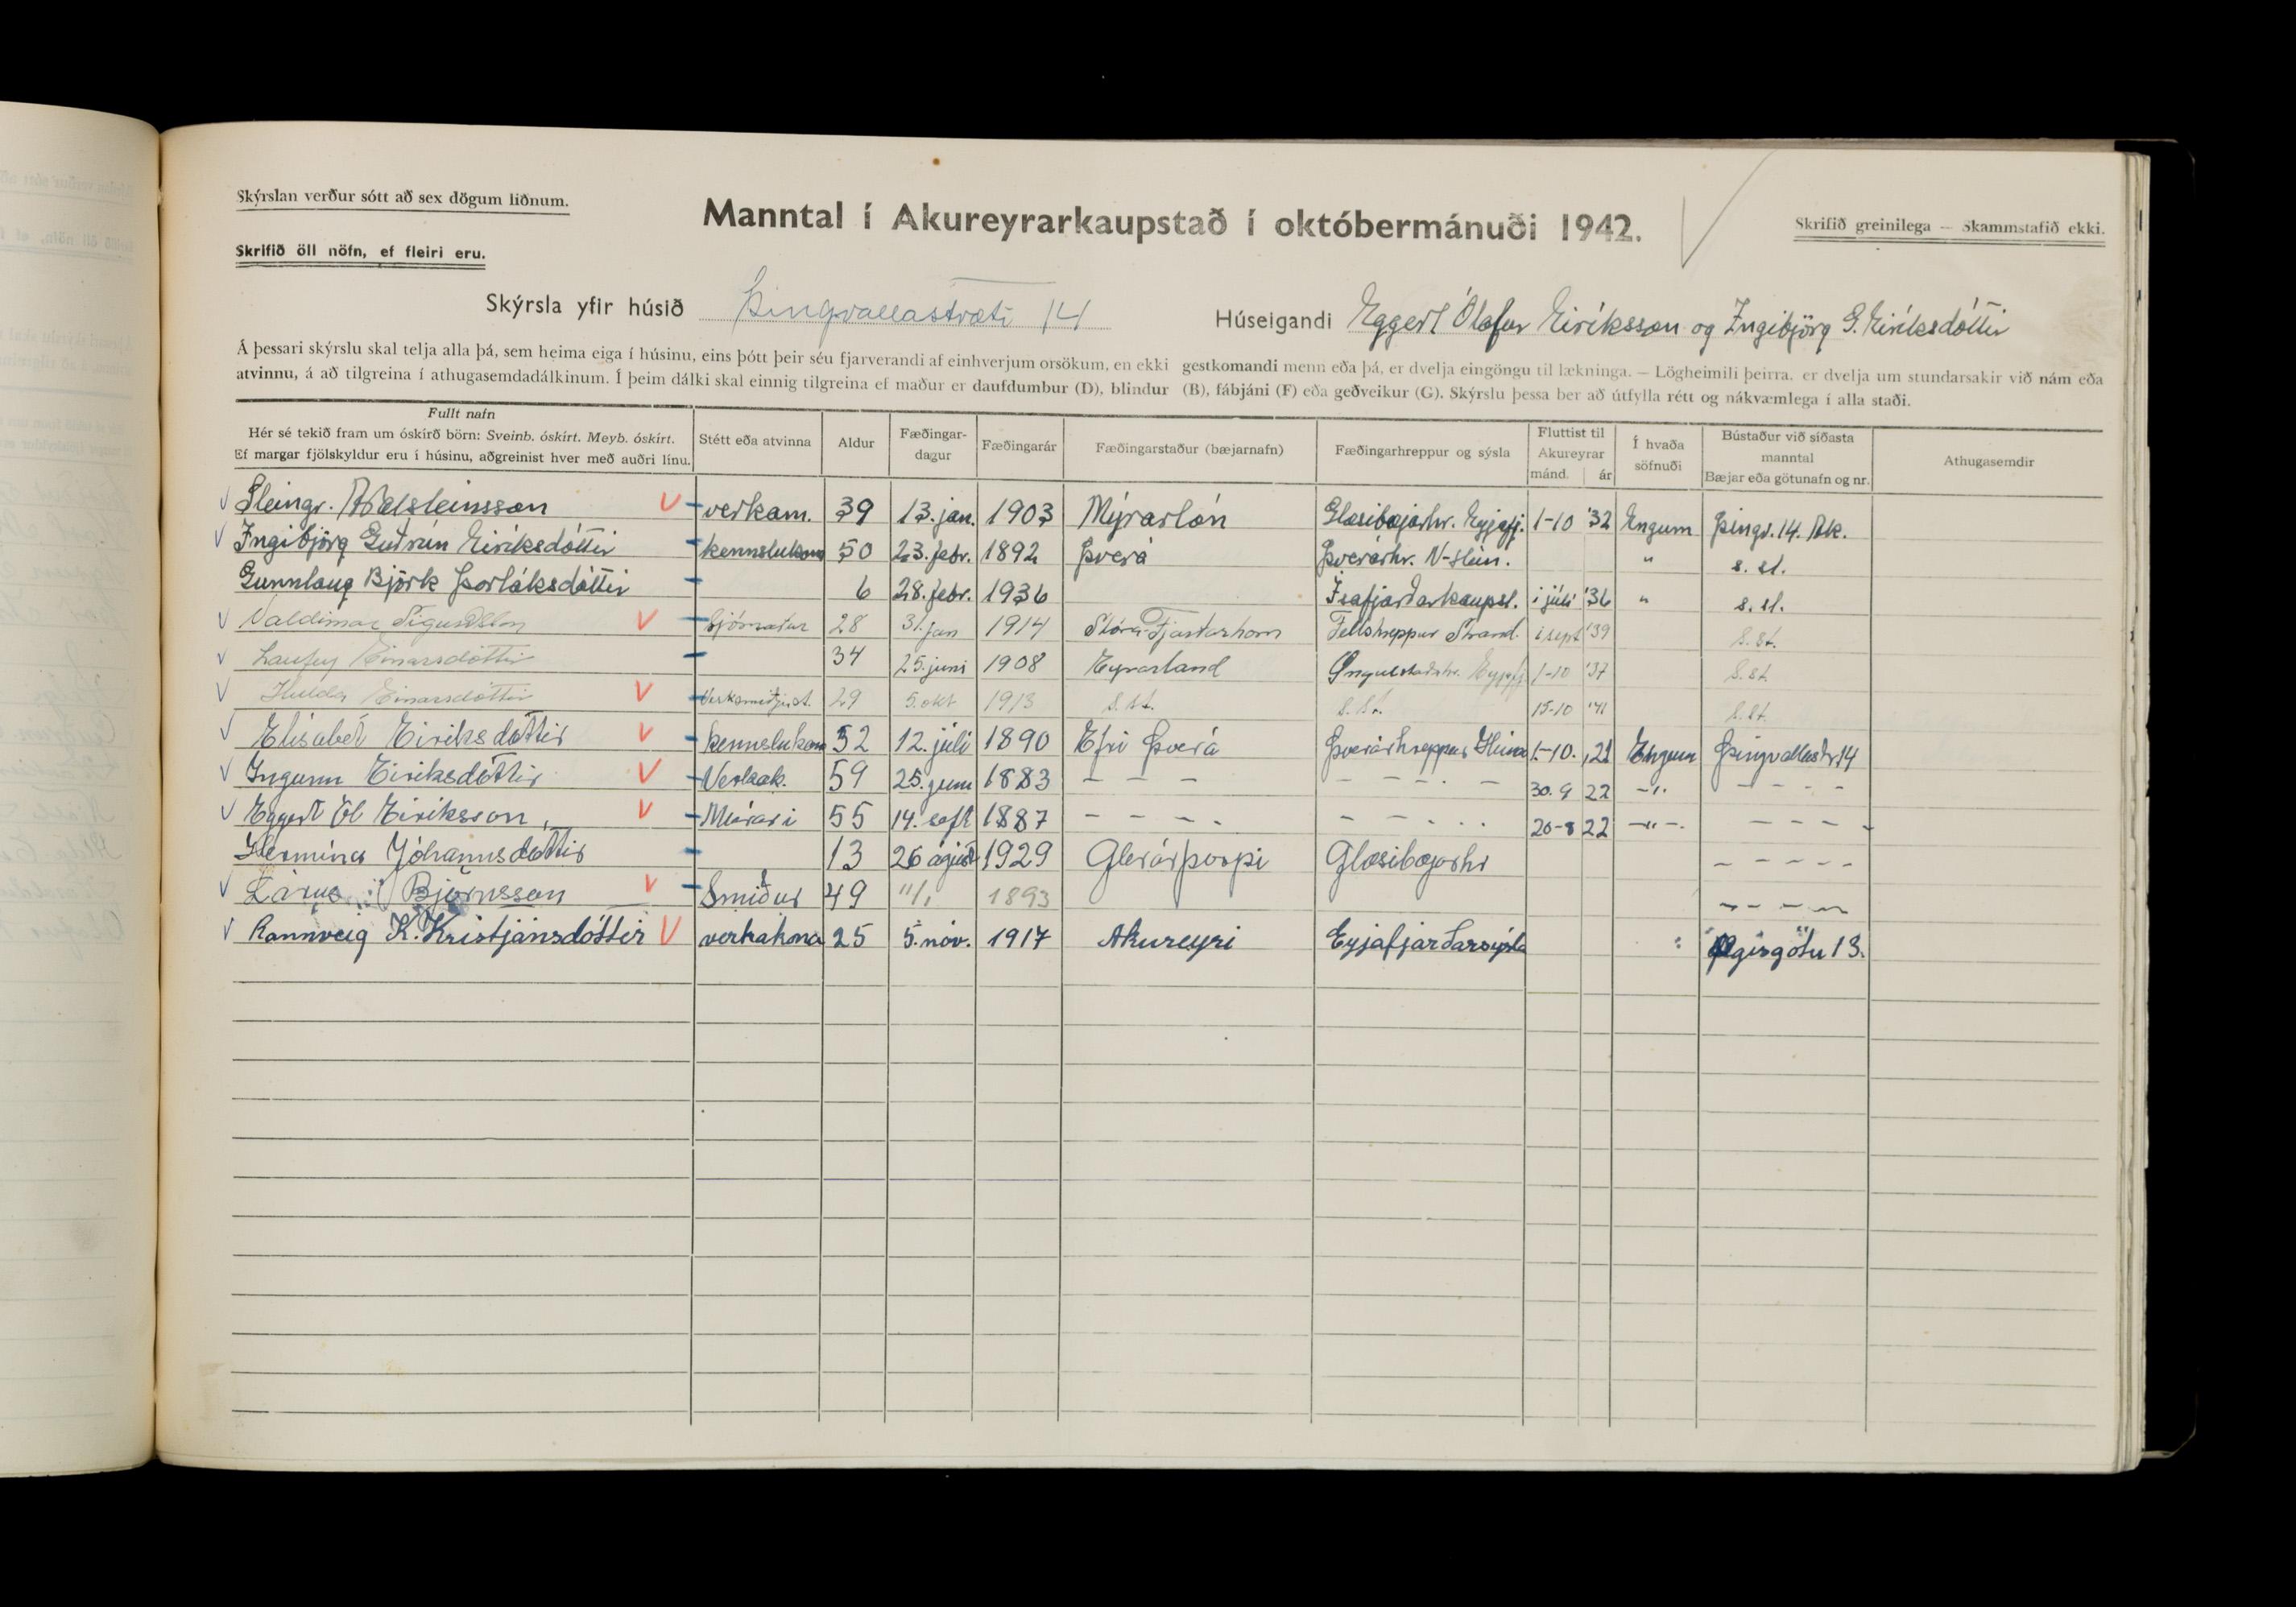 Skýrslan verður sótt að sex dögum liðnum.
Skrifið öll nöfn, ef fleiri eru.
Manntal í Akureyrarkaupstað í októbermánuði 1942.
Skrifið greinilega — Skammstafið ekki.
Skýrsla yfir húsið Þingvallastræti 14 Húseigandi Eggert Ólafur Eiríksson og Ingibjörg G. Eiríksdóttir
Á þessari skýrslu skal telja alla þá, sem heima eiga í húsinu, eins þótt þeir séu fjarverandi af einhverjum orsökum, en ekki gestkomandi menn eða þá, er dvelja eingöngu til lækninga. — Lögheimili þeirra, er dvelja um stundarsakir við nám eða
atvinnu, á að tilgreina í athugasemdadálkinum. Í þeim dálki skal einnig tilgreina ef maður er daufdumbur (D), blindur (B), fábjáni (F) eða geðveikur (G). Skýrslu þessa ber að útfylla rétt og nákvæmlega í alla staði.
Fullt nafn
Hér sé tekið fram um óskírð börn: Sveinb. óskírt. Meyb. óskírt.
Ef margar fjölskyldur eru í húsinu, aðgreinist hver með auðri línu.
Stétt eða atvinna
Aldur
Fæðingar-
dagur
Fæðingarár
Fæðingarstaður (bæjarnafn)
Fæðingarhreppur og sýsla
Fluttist til
Akureyrar
mánd. ár
Í hvaða
söfnuði
Bústaður við síðasta
manntal
Bæjar eða götunafn og nr.
Athugasemdir
Steingr. Aðalsteinsson verkam. 39 13. jan. 1903 Mýrarlón Glæsibæjarhr. Eyjafj. 1-10 '32 Engum Þingv. 14. Ak.
Ingibjörg Guðrún Eiríksdóttir kennslukona 50 23. febr. 1892 Þverá Þverárhr. V-Hún. " s. st.
Gunnlaug Björk Þorláksdóttir 6 28. febr. 1936 Ísafjarðarkaupst. í júlí '36 " s. st.
Valdimar Sigurðsson Sjómaður 28 31. jan 1914 Stóra-Fjarðarhorn Fellshreppur Strand. í sept '39 s. st.
Laufey Einarsdóttir 34 25. júní 1908 Eyrarland Öngulstaðahr. Eyjafj 1-10 '37 s. st.
Hulda Einarsdóttir Verksmiðjust. 29 5. okt 1913 s. st. s. st. 15-10 '41 s. st.
Elísabet Eiríksdóttir kennslukona 52 12. júlí 1890 Efri Þverá Þverárhreppur Húna 1-10. ,21 Engum Þingvallastr 14
Ingunn Eiríksdóttir Verkak. 59 25. júní 1883 – – – – – – – 30. 9 22 –"– – – – –
Eggert Ól Eiríksson, Múrari 55 14. sept 1887 – – – – – – – – 20-8 22 –"– – – – –
Hermína Jóhannsdóttir 13 26 ágúst 1929 Glerárþorpi Glæsibæjarhr – – – – –
Lárus Björnsson Smiður 49 11/1 1893 – – – –
Rannveig K. Kristjánsdóttir verkakona 25 5. nóv. 1917 Akureyri Eyjafjarðarsýsla Ægisgötu 13.